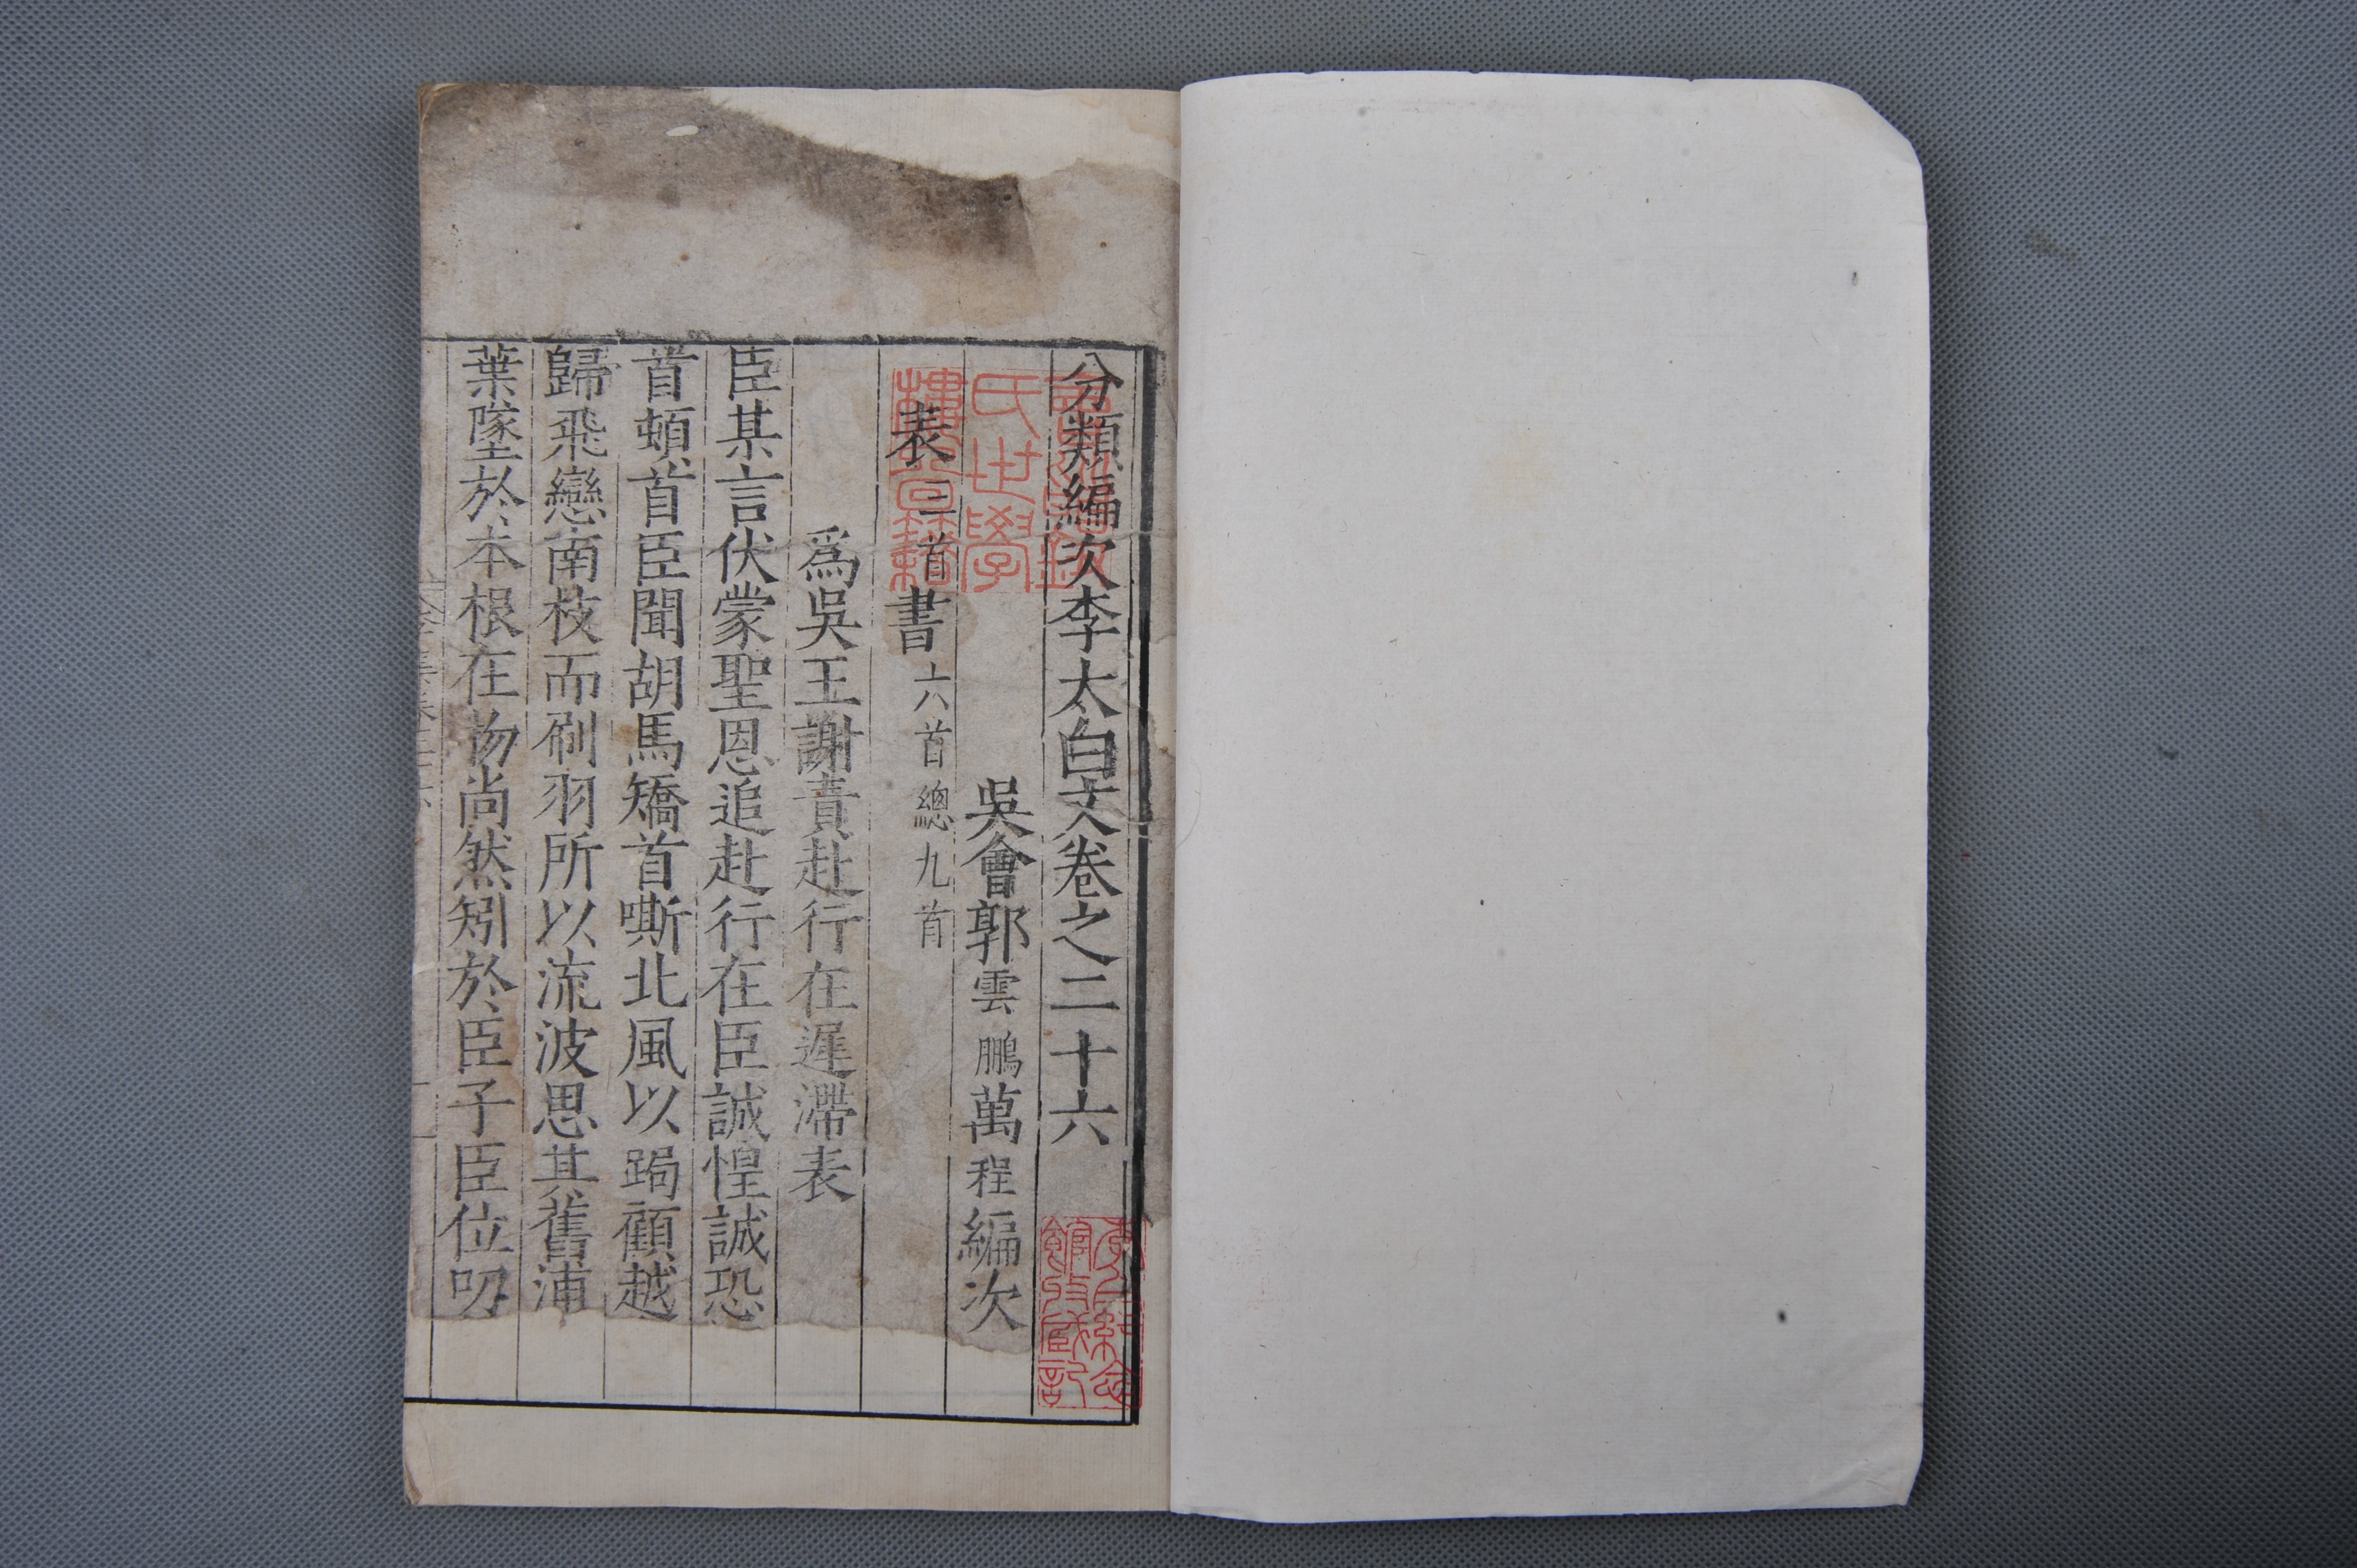 分類編次李太白文卷之二十六
吳會郭雲鵬萬程編次
表三首書六首總九首
爲吳王謝責赴行在遲滯表
臣某言伏蒙聖恩追赴行在臣誠惶誠恐
首頓首首臣聞胡馬矯首嘶北風以跼顧越
歸飛戀南枝而刷羽所以流波思其舊浦
葉墜於本根在物尚然矧於臣子臣位叨
氏世學
樓書籍
館收藏記